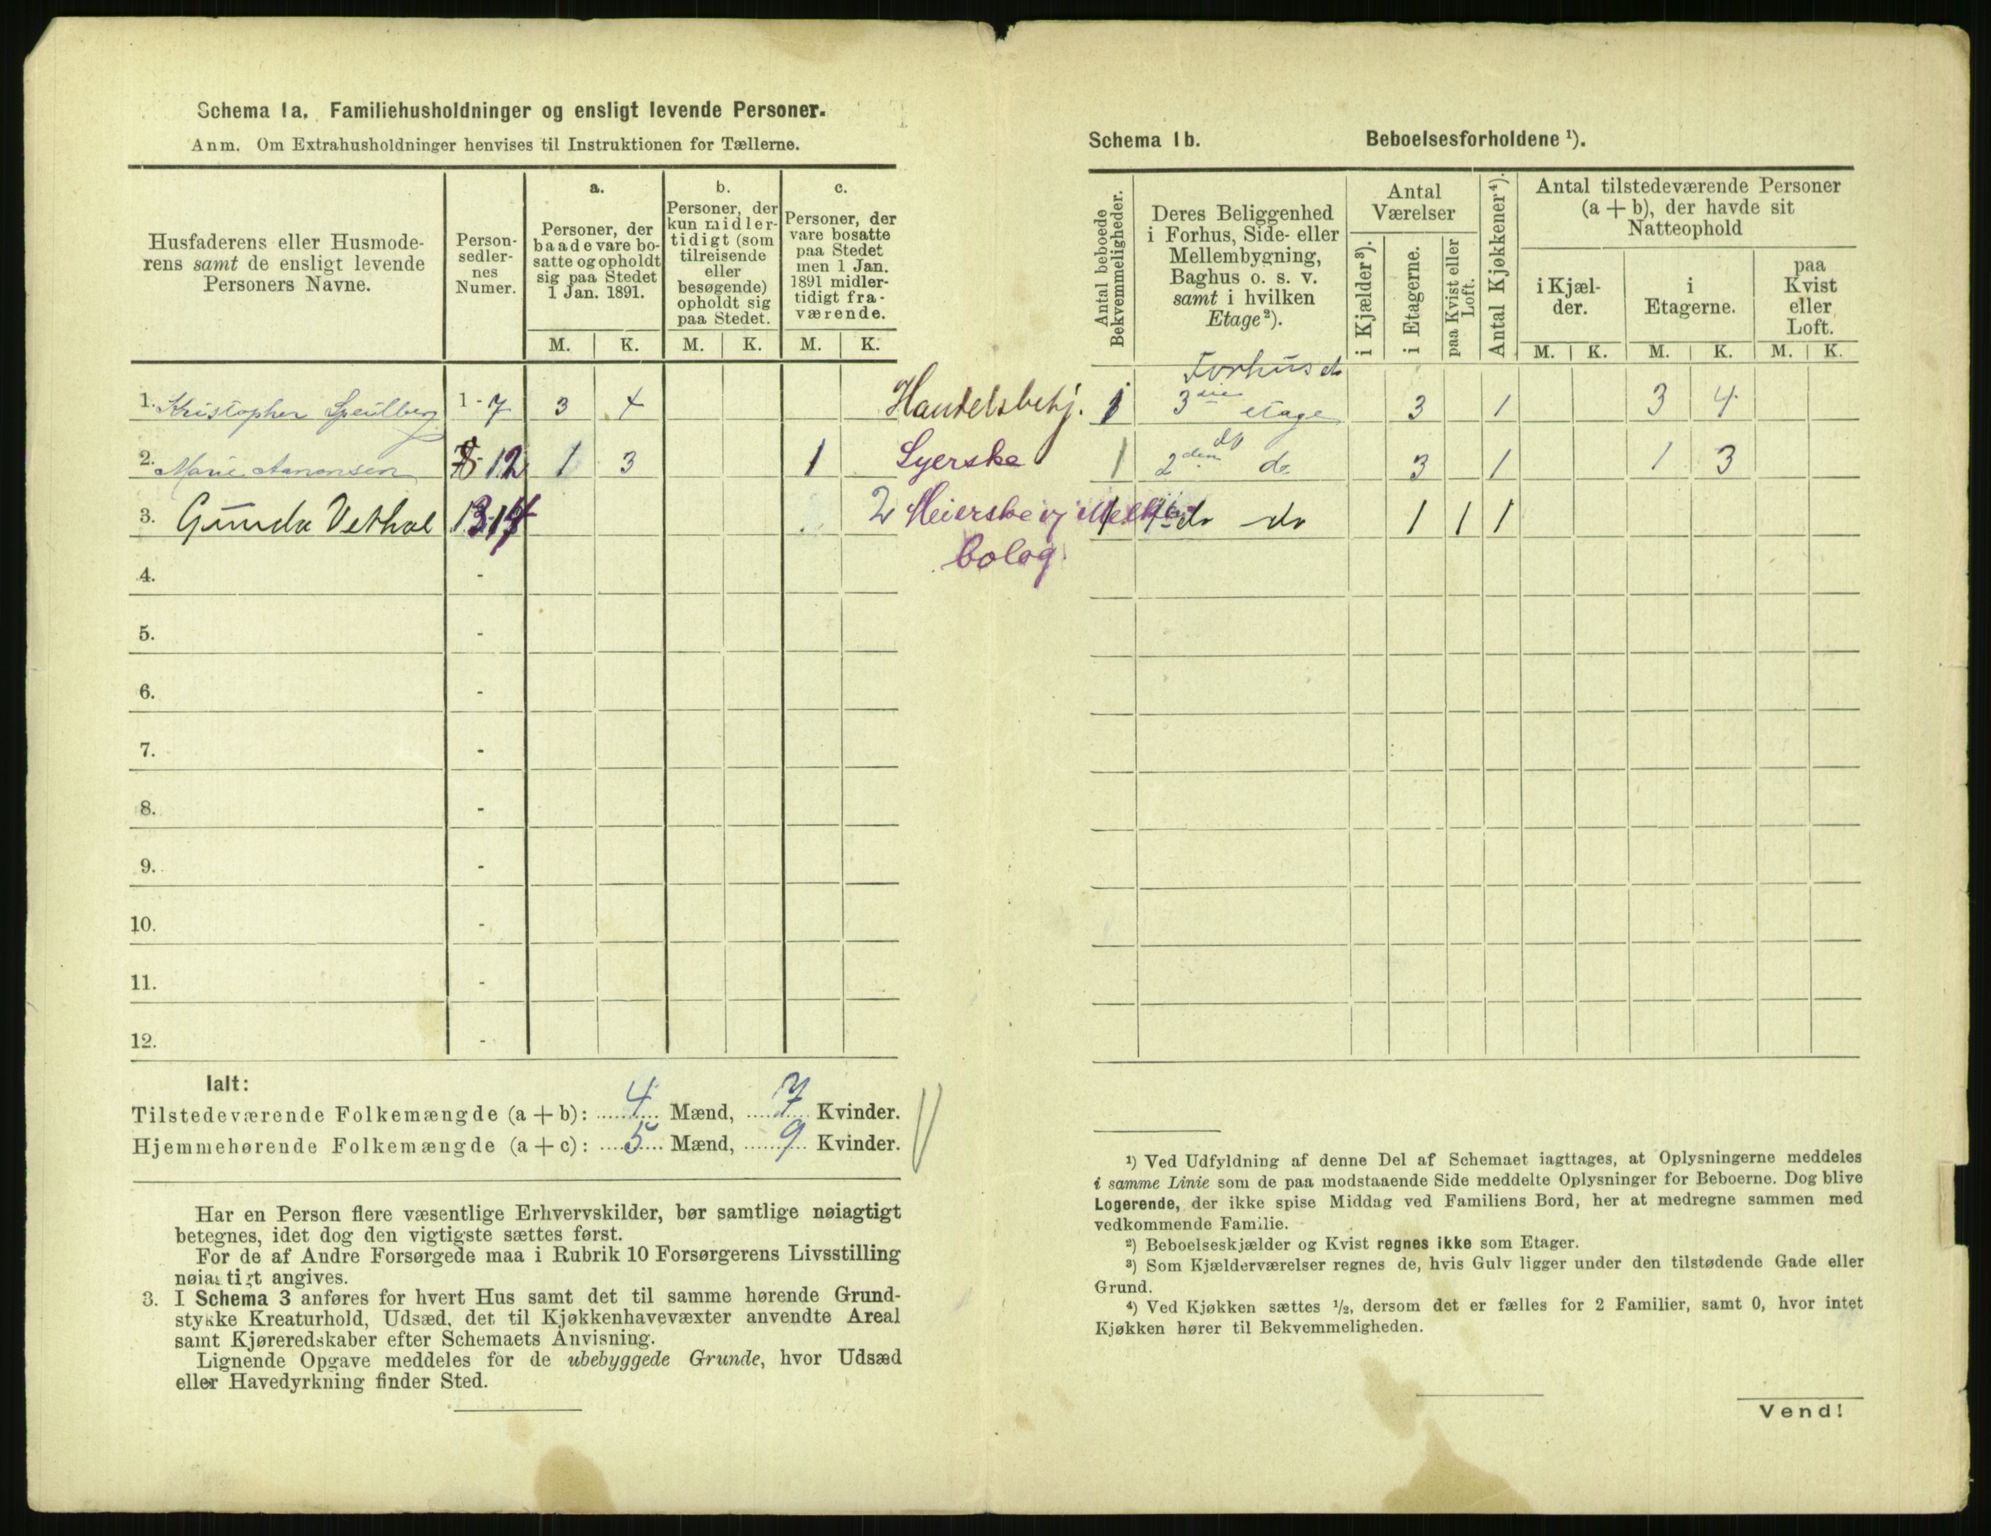 Schema 1a. Familiehusholdninger og ensligt levende Personer.
Anm. Om Extrahusholdninger henvises til Instruktionen for Tællerne.
Husfaderens eller Husmode-
rens samt de ensligt levende
Personers Navne.
Person-
sedler-
nes
Numer.
a.
Personer, der
baade vare bo-
satte og opholdt
sig paa Stedet
1 Jan. 1891.
b.
Personer, der
kun midler-
tidigt (som
tilreisende
eller
besøgende)
opholdt sig
paa Stedet.
c.
Personer, der
vare bosatte
paa Stedet
men 1 Jan.
1891 midler-
tidigt fra-
værende.
M. K. M. K. M. K.
1. Kristopher 1 - 7 3 4 Handelsbetj.
2. Marie Aanonsen 12 1 3 1 Syerske
3. Gunda Vethal 13-14 2 Meierske i
bolag.
4. -
5. -
6. -
7. -
8. -
9. -
10. -
11. -
12. -
Ialt:
Tilstedeværende Folkemængde (a + b): 4 Mænd, 7 Kvinder.
Hjemmehørende Folkemængde (a + c): 5 Mænd, 9 Kvinder.
Har en Person flere væsentlige Erhvervskilder, bør samtlige nøiagtigt
betegnes, idet dog den vigtigste sættes først.
For de af Andre Forsørgede maa i Rubrik 10 Forsørgerens Livsstilling
nøiagtigt angives.
3. I Schema 3 anføres for hvert Hus samt det til samme hørende Grund-
stykke Kreaturhold, Udsæd, det til Kjøkkenhavevæxter anvendte Areal
samt Kjøreredskaber efter Schemaets Anvisning.
Lignende Opgave meddeles for de ubebyggede Grunde, hvor Udsæd
eller Havedyrkning finder Sted.
Schema 1b. Beboelsesforholdene ¹).
Antal beboede
Bekvemmeligheder.
Deres Beliggenhed
i Forhus, Side- eller
Mellembygning,
Baghus o. s. v.
samt i hvilken
Etage²).
Antal
Værelser
i Kjælder³).
i Etagerne.
paa Kvist eller
Loft.
Antal Kjøkkener⁴).
Antal tilstedeværende Personer
(a + b), der havde sit
Natteophold
i Kjæl-
der.
i
Etagerne.
paa
Kvist
eller
Loft.
M. K. M. K. M. K.
Forhus
1 3die etage 3 1 3 4
do
1 2den do 3 1 1 3
1 do do 1 1 1
¹) Ved Udfyldning af denne Del af Schemaet iagttages, at Oplysningerne meddeles
i samme Linie som de paa modstaaende Side meddelte Oplysninger for Beboerne. Dog blive
Logerende, der ikke spise Middag ved Familiens Bord, her at medregne sammen med
vedkommende Familie.
²) Beboelseskjælder og Kvist regnes ikke som Etager.
³) Som Kjælderværelser regnes de, hvis Gulv ligger under den tilstødende Gade eller
Grund.
⁴) Ved Kjøkken sættes ½, dersom det er fælles for 2 Familier, samt 0, hvor intet
Kjøkken hører til Bekvemmeligheden.
Vend!